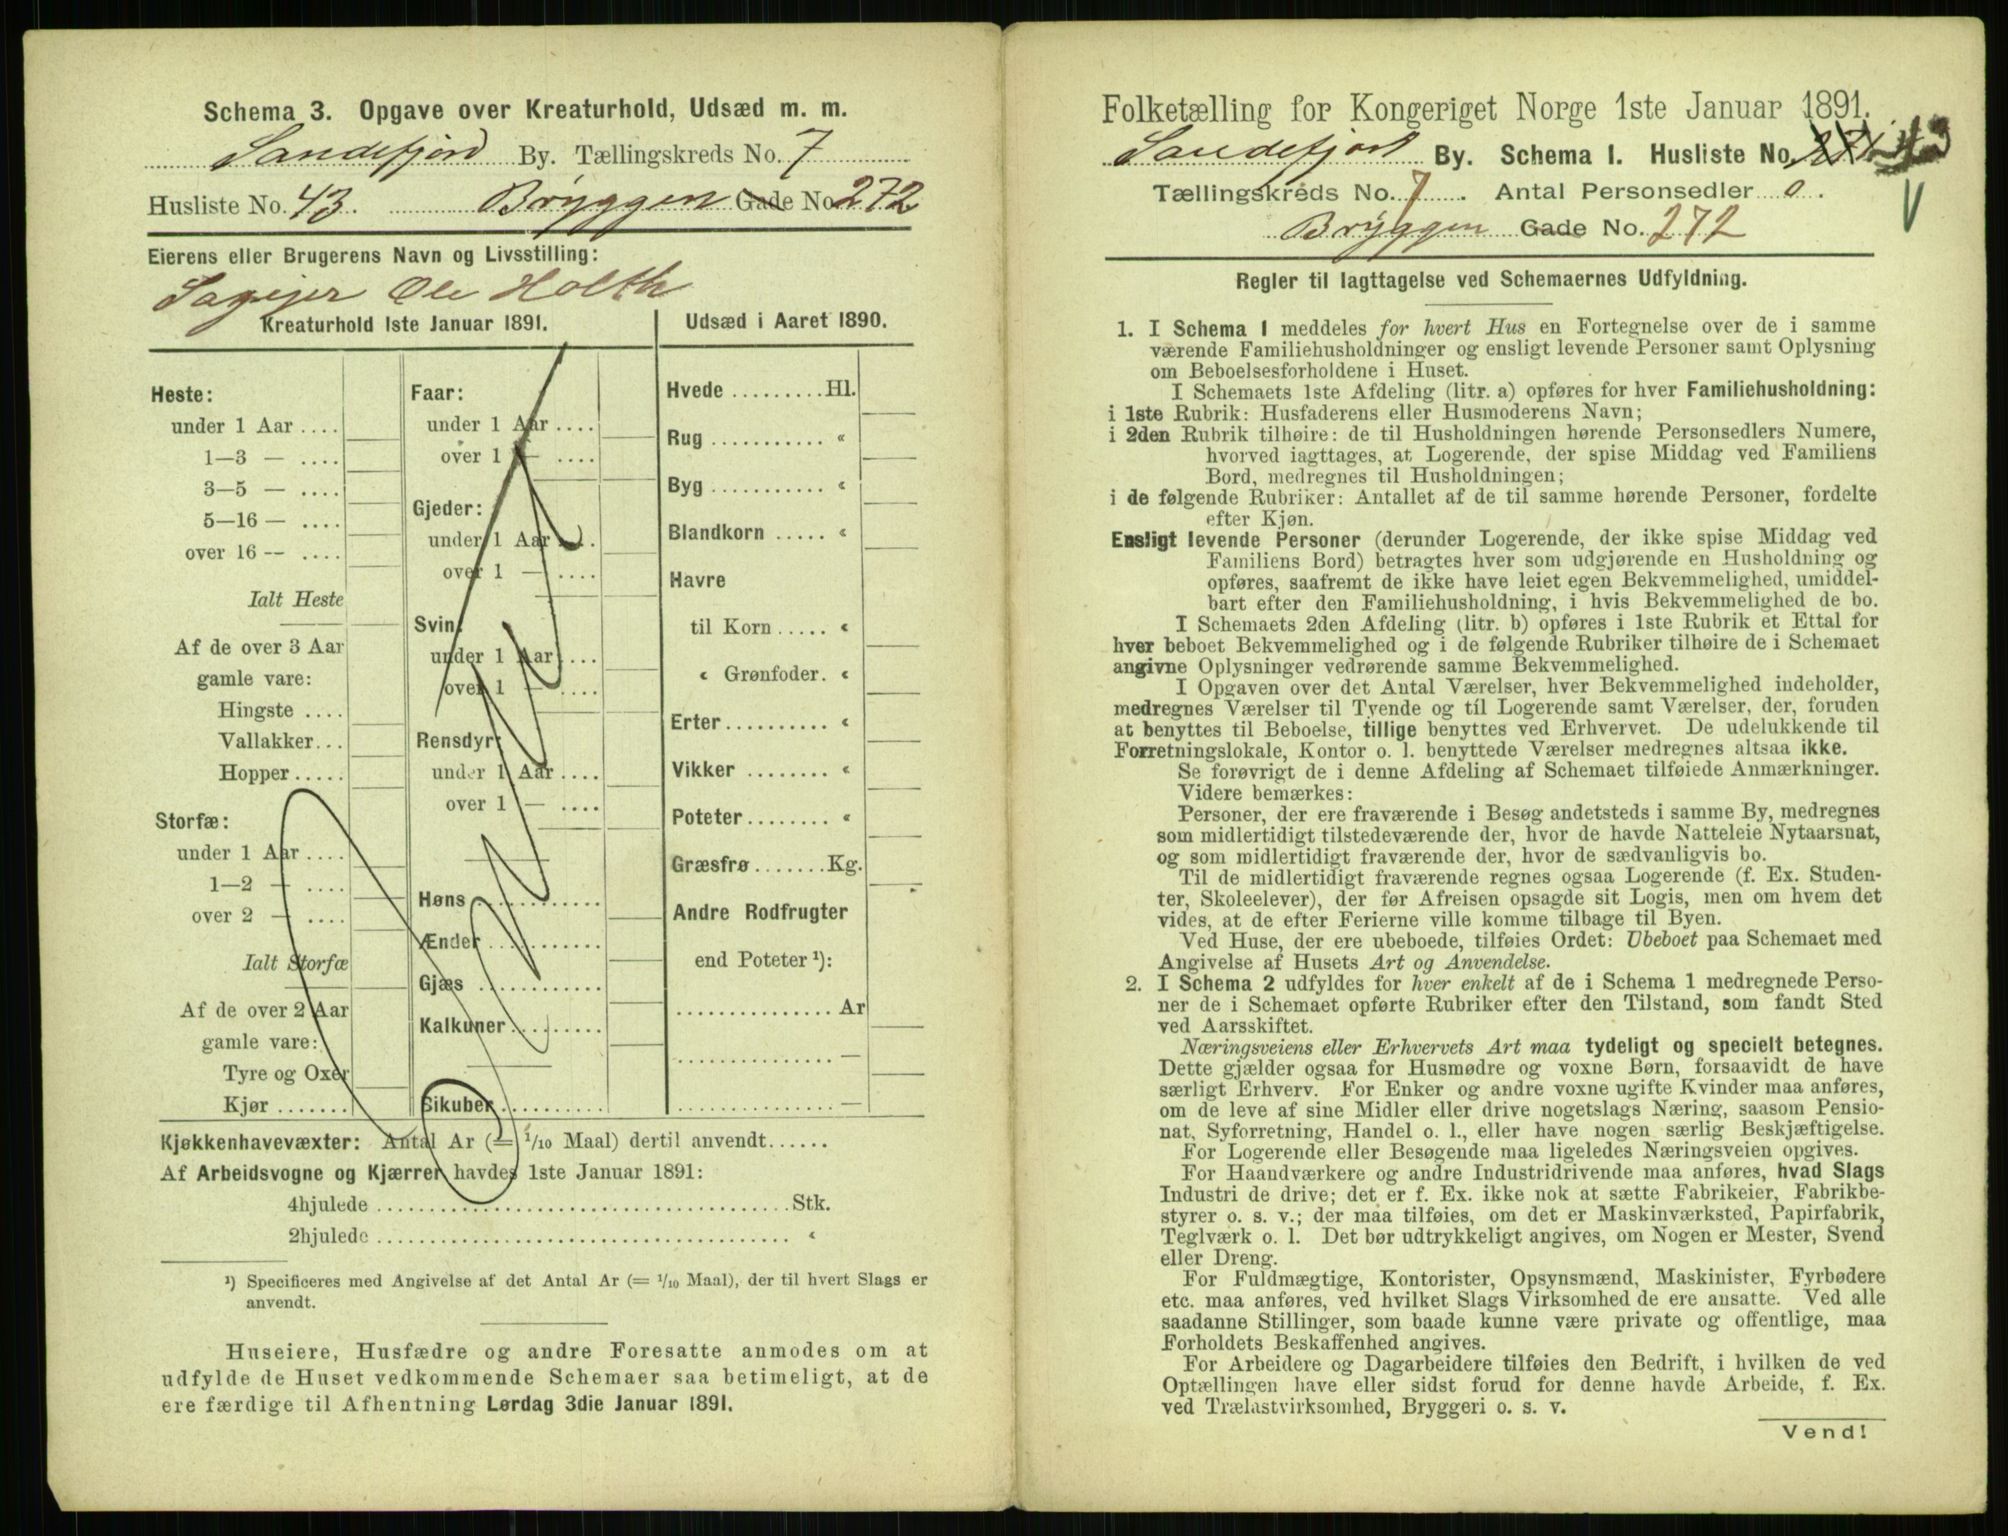 Schema 3. Opgave over Kreaturhold, Udsæd m. m.
Sandefjord By. Tællingskreds No. 7
Husliste No. 43. Bryggen Gade No 272
Eierens eller Brugerens Navn og Livsstilling:
Sagejer Ole Holth
Kreaturhold 1ste Januar 1891.
Heste:
under 1 Aar ....
1—3 — ....
3—5 — ....
5—16 — ....
over 16 -- ....
Ialt Heste
Af de over 3 Aar
gamle vare:
Hingste ....
Vallakker...
Hopper.....
Storfæ:
under 1 Aar ....
1—2 — ....
over 2 — ....
Ialt Storfæ
Af de over 2 Aar
gamle vare:
Tyre og Oxer
Kjør .......
Faar:
under 1 Aar ....
over 1 — ....
Gjeder:
under 1 Aar ....
over 1 — ....
Svin:
under 1 Aar ....
over 1 — ....
Rensdyr:
under 1 Aar ....
over 1 — ....
Høns ............
Ænder ............
Gjæs ............
Kalkuner..........
Bikuber...........
Udsæd i Aaret 1890.
Hvede .........Hl.
Rug ........... «
Byg ........... «
Blandkorn ..... «
Havre
til Korn ..... «
« Grønfoder. «
Erter.......... «
Vikker ........ «
Poteter........ «
Græsfrø.......Kg.
Andre Rodfrugter
end Poteter ¹):
............... Ar
............... —
............... —
Kjøkkenhavevæxter: Antal Ar (= 1/10 Maal) dertil anvendt......
Af Arbeidsvogne og Kjærrer havdes 1ste Januar 1891:
4hjulede ........................................Stk.
2hjulede ........................................ «
¹) Specificeres med Angivelse af det Antal Ar (= 1/10 Maal), der til hvert Slags er
anvendt.
Huseiere, Husfædre og andre Foresatte anmodes om at
udfylde de Huset vedkommende Schemaer saa betimeligt, at de
ere færdige til Afhentning Lørdag 3die Januar 1891.
Folketælling for Kongeriget Norge 1ste Januar 1891.
Sandefjord By. Schema I. Husliste No. 43
Tællingskreds No. 7. Antal Personsedler 0.
Bryggen Gade No. 272
Regler til Iagttagelse ved Schemaernes Udfyldning.
1. I Schema 1 meddeles for hvert Hus en Fortegnelse over de i samme
værende Familiehusholdninger og ensligt levende Personer samt Oplysning
om Beboelsesforholdene i Huset.
I Schemaets 1ste Afdeling (litr. a) opføres for hver Familiehusholdning:
i 1ste Rubrik: Husfaderens eller Husmoderens Navn;
i 2den Rubrik tilhøire: de til Husholdningen hørende Personsedlers Numere,
hvorved iagttages, at Logerende, der spise Middag ved Familiens
Bord, medregnes til Husholdningen;
i de følgende Rubriker: Antallet af de til samme hørende Personer, fordelte
efter Kjøn.
Ensligt levende Personer (derunder Logerende, der ikke spise Middag ved
Familiens Bord) betragtes hver som udgjørende en Husholdning og
opføres, saafremt de ikke have leiet egen Bekvemmelighed, umiddel-
bart efter den Familiehusholdning, i hvis Bekvemmelighed de bo.
I Schemaets 2den Afdeling (litr. b) opføres i 1ste Rubrik et Ettal for
hver beboet Bekvemmelighed og i de følgende Rubriker tilhøire de i Schemaet
angivne Oplysninger vedrørende samme Bekvemmelighed.
I Opgaven over det Antal Værelser, hver Bekvemmelighed indeholder,
medregnes Værelser til Tyende og til Logerende samt Værelser, der, foruden
at benyttes til Beboelse, tillige benyttes ved Erhvervet. De udelukkende til
Forretningslokale, Kontor o. l. benyttede Værelser medregnes altsaa ikke.
Se forøvrigt de i denne Afdeling af Schemaet tilføiede Anmærkninger.
Videre bemærkes:
Personer, der ere fraværende i Besøg andetsteds i samme By, medregnes
som midlertidigt tilstedeværende der, hvor de havde Natteleie Nytaarsnat,
og som midlertidigt fraværende der, hvor de sædvanligvis bo.
Til de midlertidigt fraværende regnes ogsaa Logerende (f. Ex. Studen-
ter, Skoleelever), der før Afreisen opsagde sit Logis, men om hvem det
vides, at de efter Ferierne ville komme tilbage til Byen.
Ved Huse, der ere ubeboede, tilføies Ordet: Ubeboet paa Schemaet med
Angivelse af Husets Art og Anvendelse.
2. I Schema 2 udfyldes for hver enkelt af de i Schema 1 medregnede Perso-
ner de i Schemaet opførte Rubriker efter den Tilstand, som fandt Sted
ved Aarsskiftet.
Næringsveiens eller Erhvervets Art maa tydeligt og specielt betegnes.
Dette gjælder ogsaa for Husmødre og voxne Børn, forsaavidt de have
særligt Erhverv. For Enker og andre voxne ugifte Kvinder maa anføres,
om de leve af sine Midler eller drive nogetslags Næring, saasom Pensio-
nat, Syforretning, Handel o. l., eller have nogen særlig Beskjæftigelse.
For Logerende eller Besøgende maa ligeledes Næringsveien opgives.
For Haandværkere og andre Industridrivende maa anføres, hvad Slags
Industri de drive; det er f. Ex. ikke nok at sætte Fabrikeier, Fabrikbe-
styrer o. s. v.; der maa tilføies, om det er Maskinværksted, Papirfabrik,
Teglværk o. l. Det bør udtrykkeligt angives, om Nogen er Mester, Svend
eller Dreng.
For Fuldmægtige, Kontorister, Opsynsmænd, Maskinister, Fyrbødere
etc. maa anføres, ved hvilket Slags Virksomhed de ere ansatte. Ved alle
saadanne Stillinger, som baade kunne være private og offentlige, maa
Forholdets Beskaffenhed angives.
For Arbeidere og Dagarbeidere tilføies den Bedrift, i hvilken de ved
Optællingen have eller sidst forud for denne havde Arbeide, f. Ex.
ved Trælastvirksomhed, Bryggeri o. s. v.
Vend!